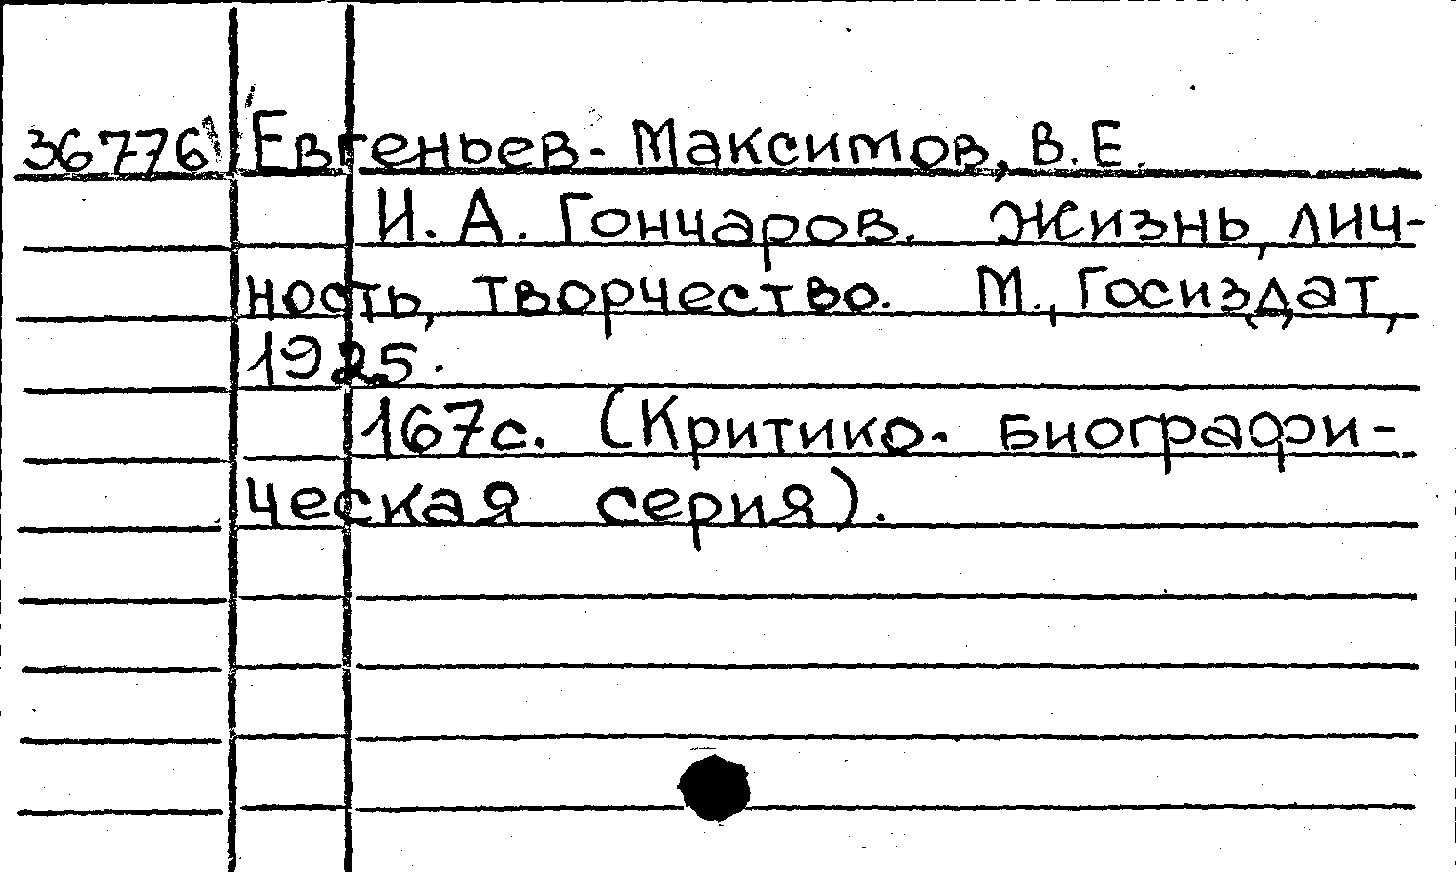 36776 Евгеньев-Максимов, В.Е.
И.А. Гончаров. Жизнь, лич-
ность, творчество. М., Госиздат,
1925.
167с. (Критико-биографи-
ческая серия).